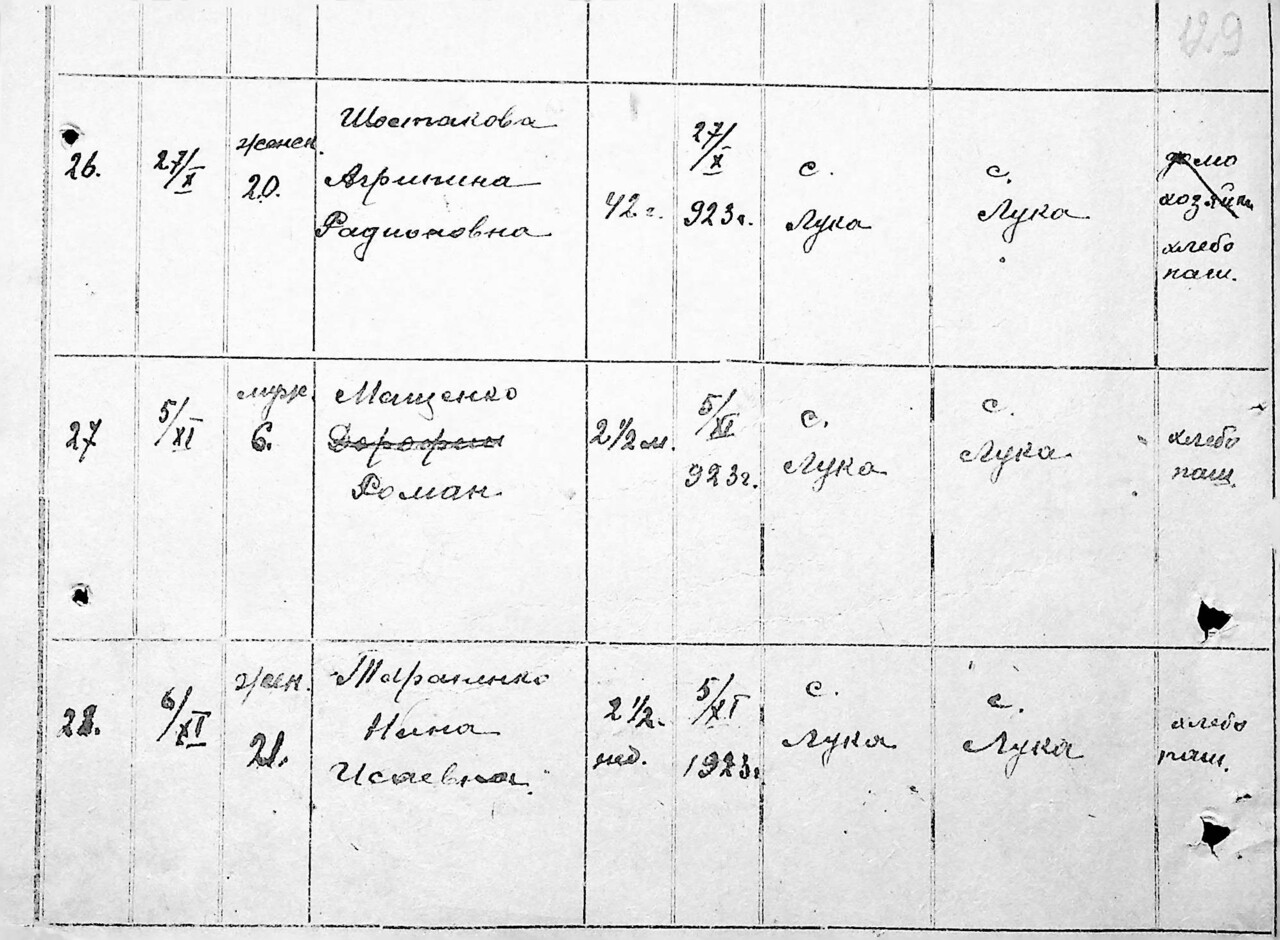 129
26.
27/X
женск.
20.
Шостакова
Агрипина
Радионовна
42 г.
27/X
923 г.
с.
Лука
с.
Лука
домо
хозяйка
хлебо
паш.
27
5/XI
муж.
6.
Мащенко
Дорофии
Роман
2 1/2 м.
5/XI
923 г.
с.
Лука
с.
Лука
хлебо
паш.
28.
6/XI
жен.
21.
Тараненко
Нина
Исаевна.
2 1/2.
нед.
5/XI
1923 г.
с.
Лука
с.
Лука
хлебо
паш.